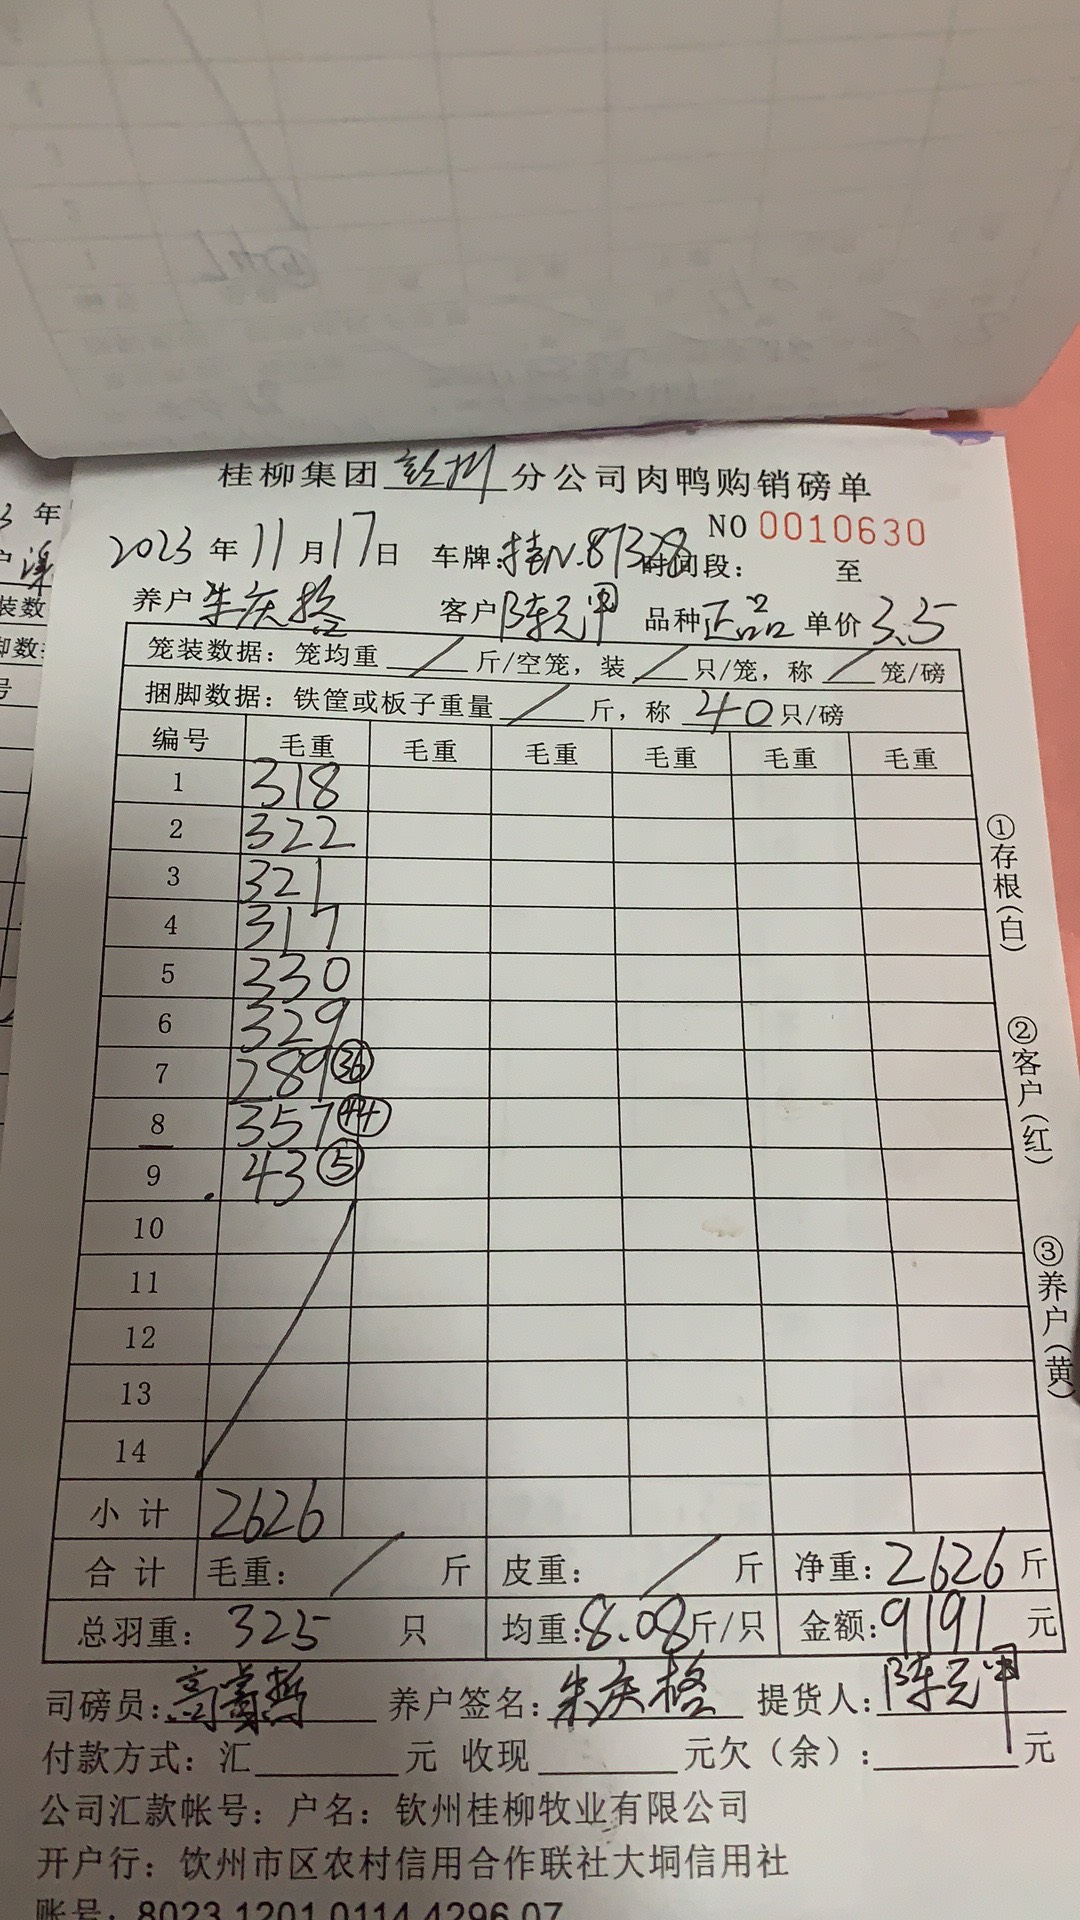 桂柳集团 钦州 分公司肉鸭购销磅单
NO 0010630
2023 年 11 月 17 日 车牌:桂N.87328 时间段: 至
养户 朱庆格 客户 陈元甲 品种 正品 单价 3.5
笼装数据: 笼均重 / 斤/空笼, 装 / 只/笼, 称 / 笼/磅
捆脚数据: 铁筐或板子重量 / 斤, 称 40 只/磅
编号 毛重 毛重 毛重 毛重 毛重 毛重
1 318
2 322
3 321
4 317
5 330
6 329
7 289 ㊱
8 357 ㊹
9 43 ⑤
10
11
12
13
14
小 计 2626
合 计 毛重: / 斤 皮重: / 斤 净重: 2626 斤
总羽重: 325 只 均重: 8.08 斤/只 金额: 9191 元
司磅员: 养户签名: 朱庆格 提货人: 陈元甲
付款方式: 汇 元 收现 元欠(余): 元
公司汇款帐号: 户名: 钦州桂柳牧业有限公司
开户行: 钦州市区农村信用合作联社大垌信用社
账号: 8023 1201 0114 4296 07
①存根(白)
②客户(红)
③养户(黄)